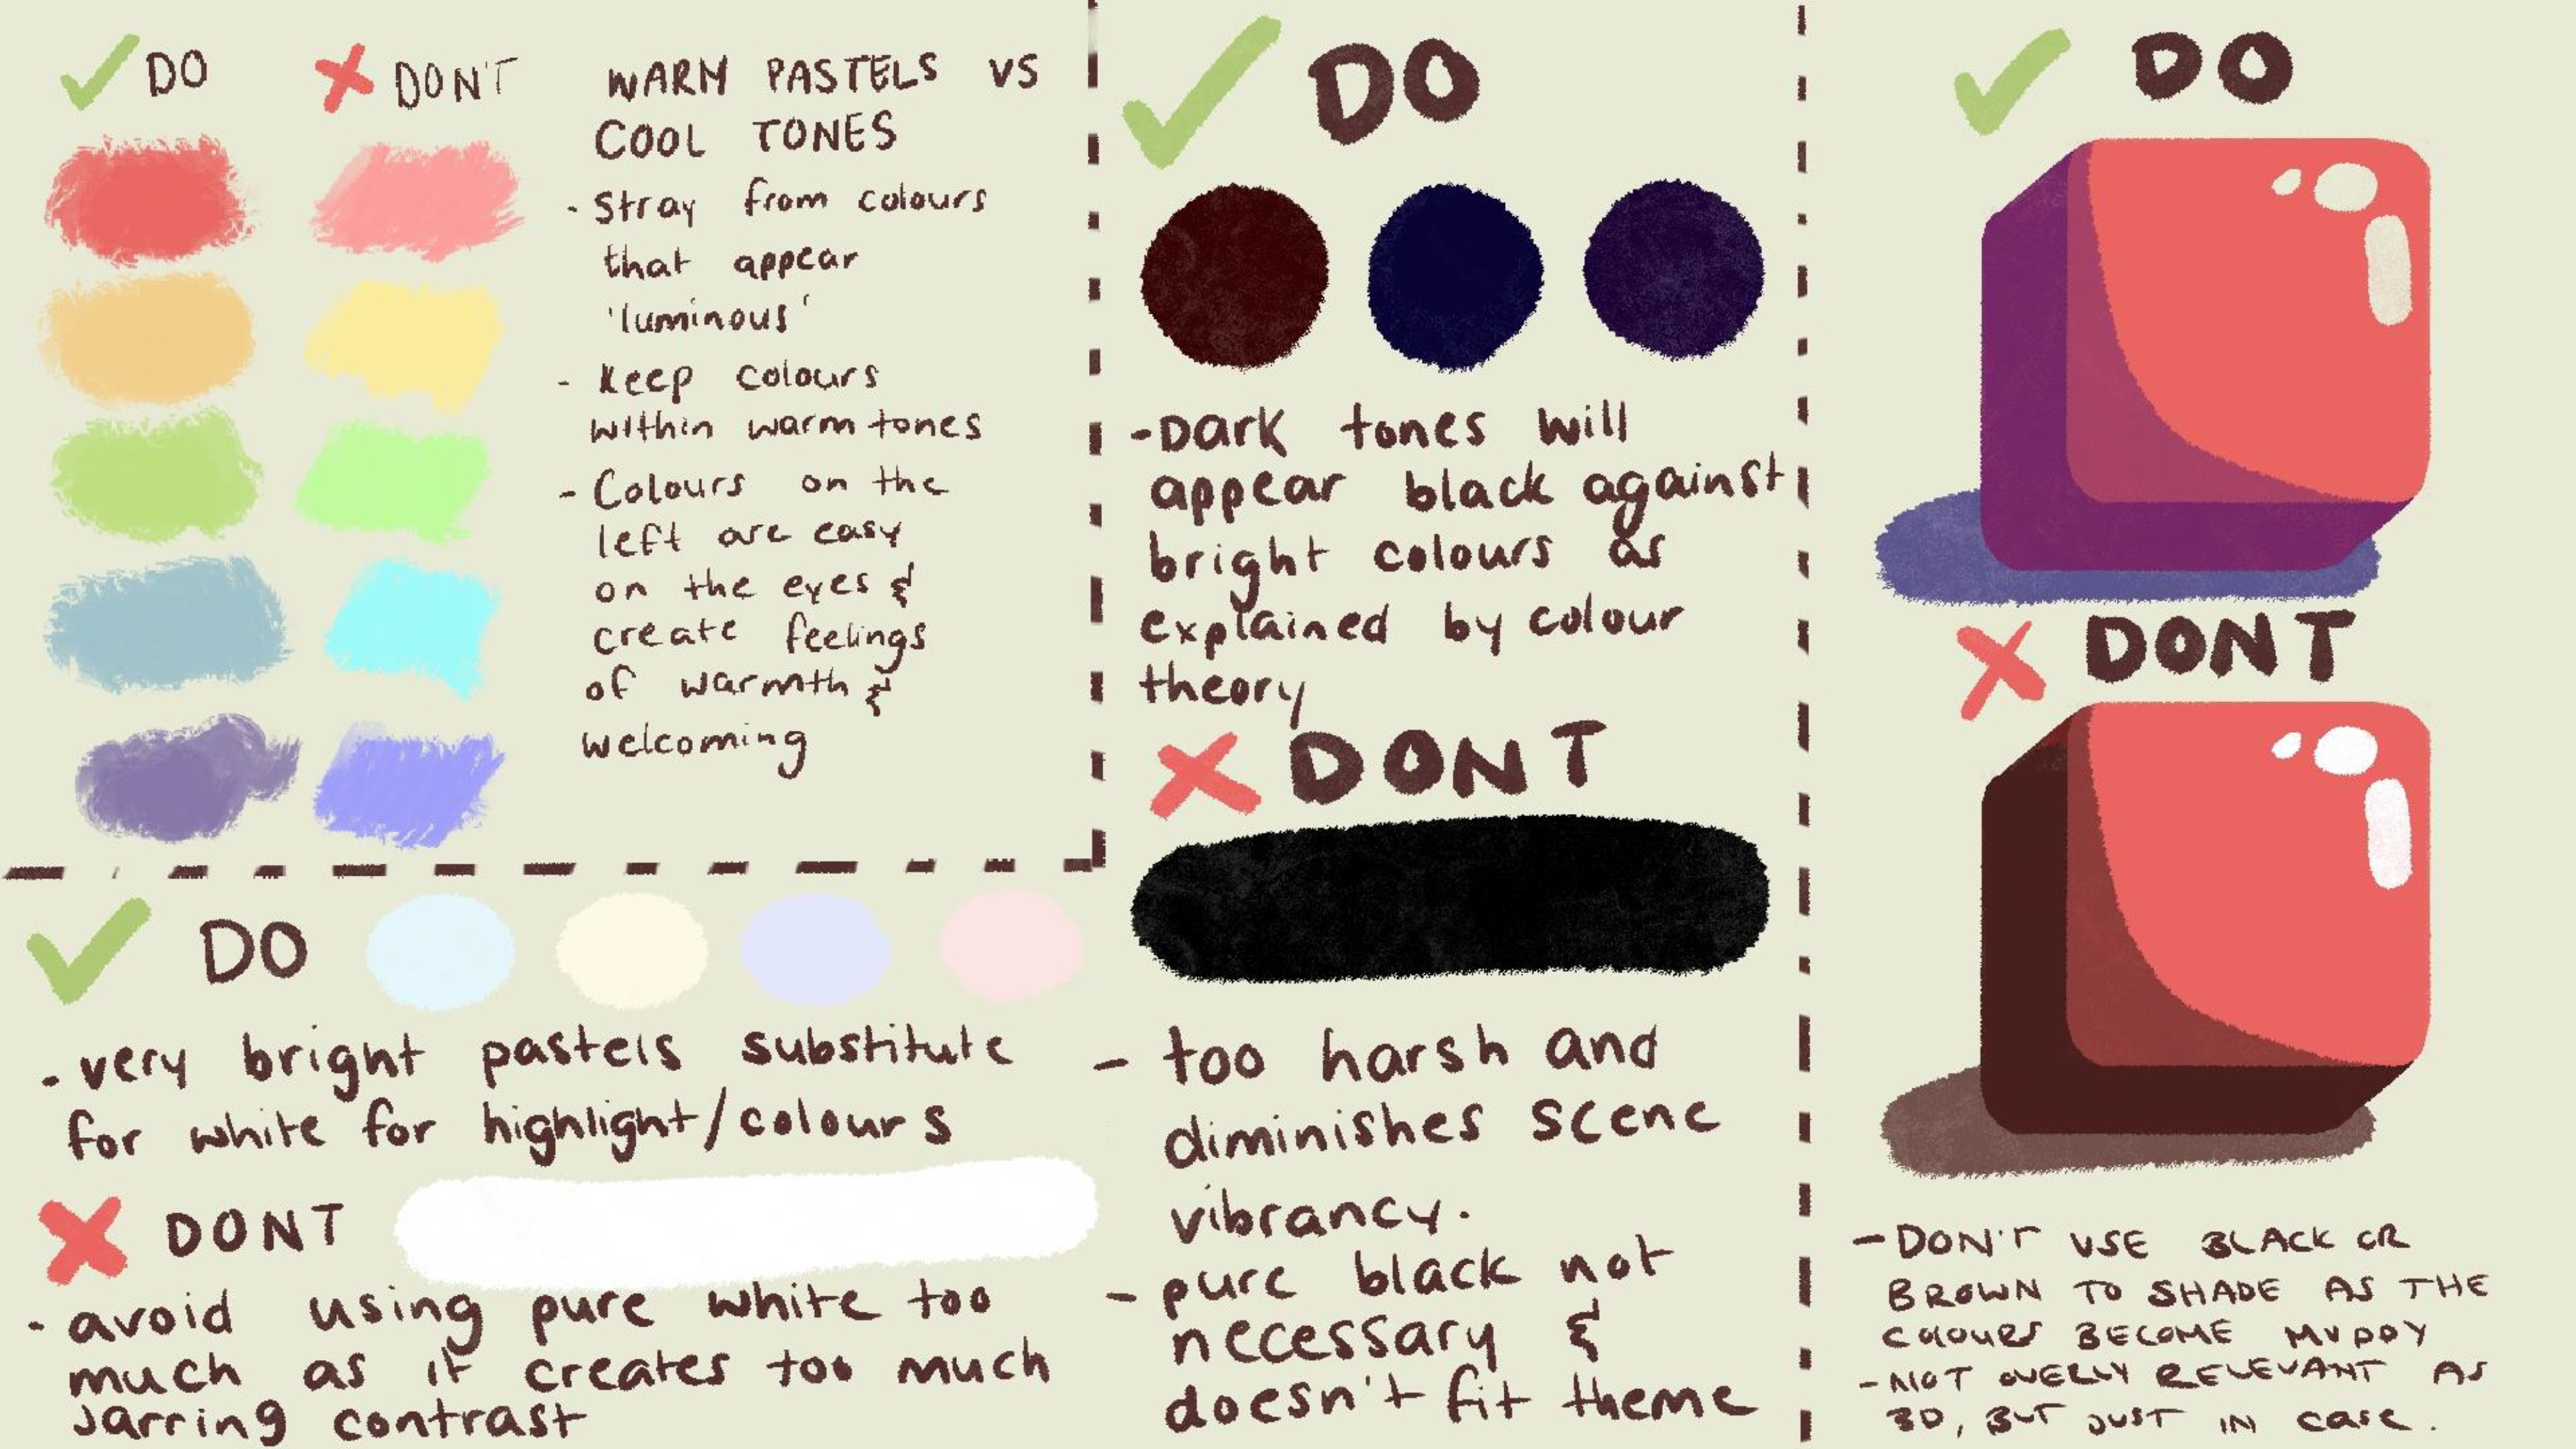 DO
DON'T
WARM PASTELS VS
COOL TONES
- Stray from colours
that appear
'luminous'
- Keep colours
within warm tones
- Colours on the
left are easy
on the eyes &
create feelings
of warmth &
welcoming
DO
- very bright pastels substitute
for white for highlight/colours
DONT
- avoid using pure white too
much as it creates too much
jarring contrast
DO
- Dark tones will
appear black against
bright colours as
explained by colour
theory
DONT
- too harsh and
diminishes scene
vibrancy.
- pure black not
necessary &
doesn't fit theme
DO
DONT
- DON'T USE BLACK OR
BROWN TO SHADE AS THE
COLOURS BECOME MUDDY
- NOT OVERLY RELEVANT AS
3D, BUT JUST IN case.